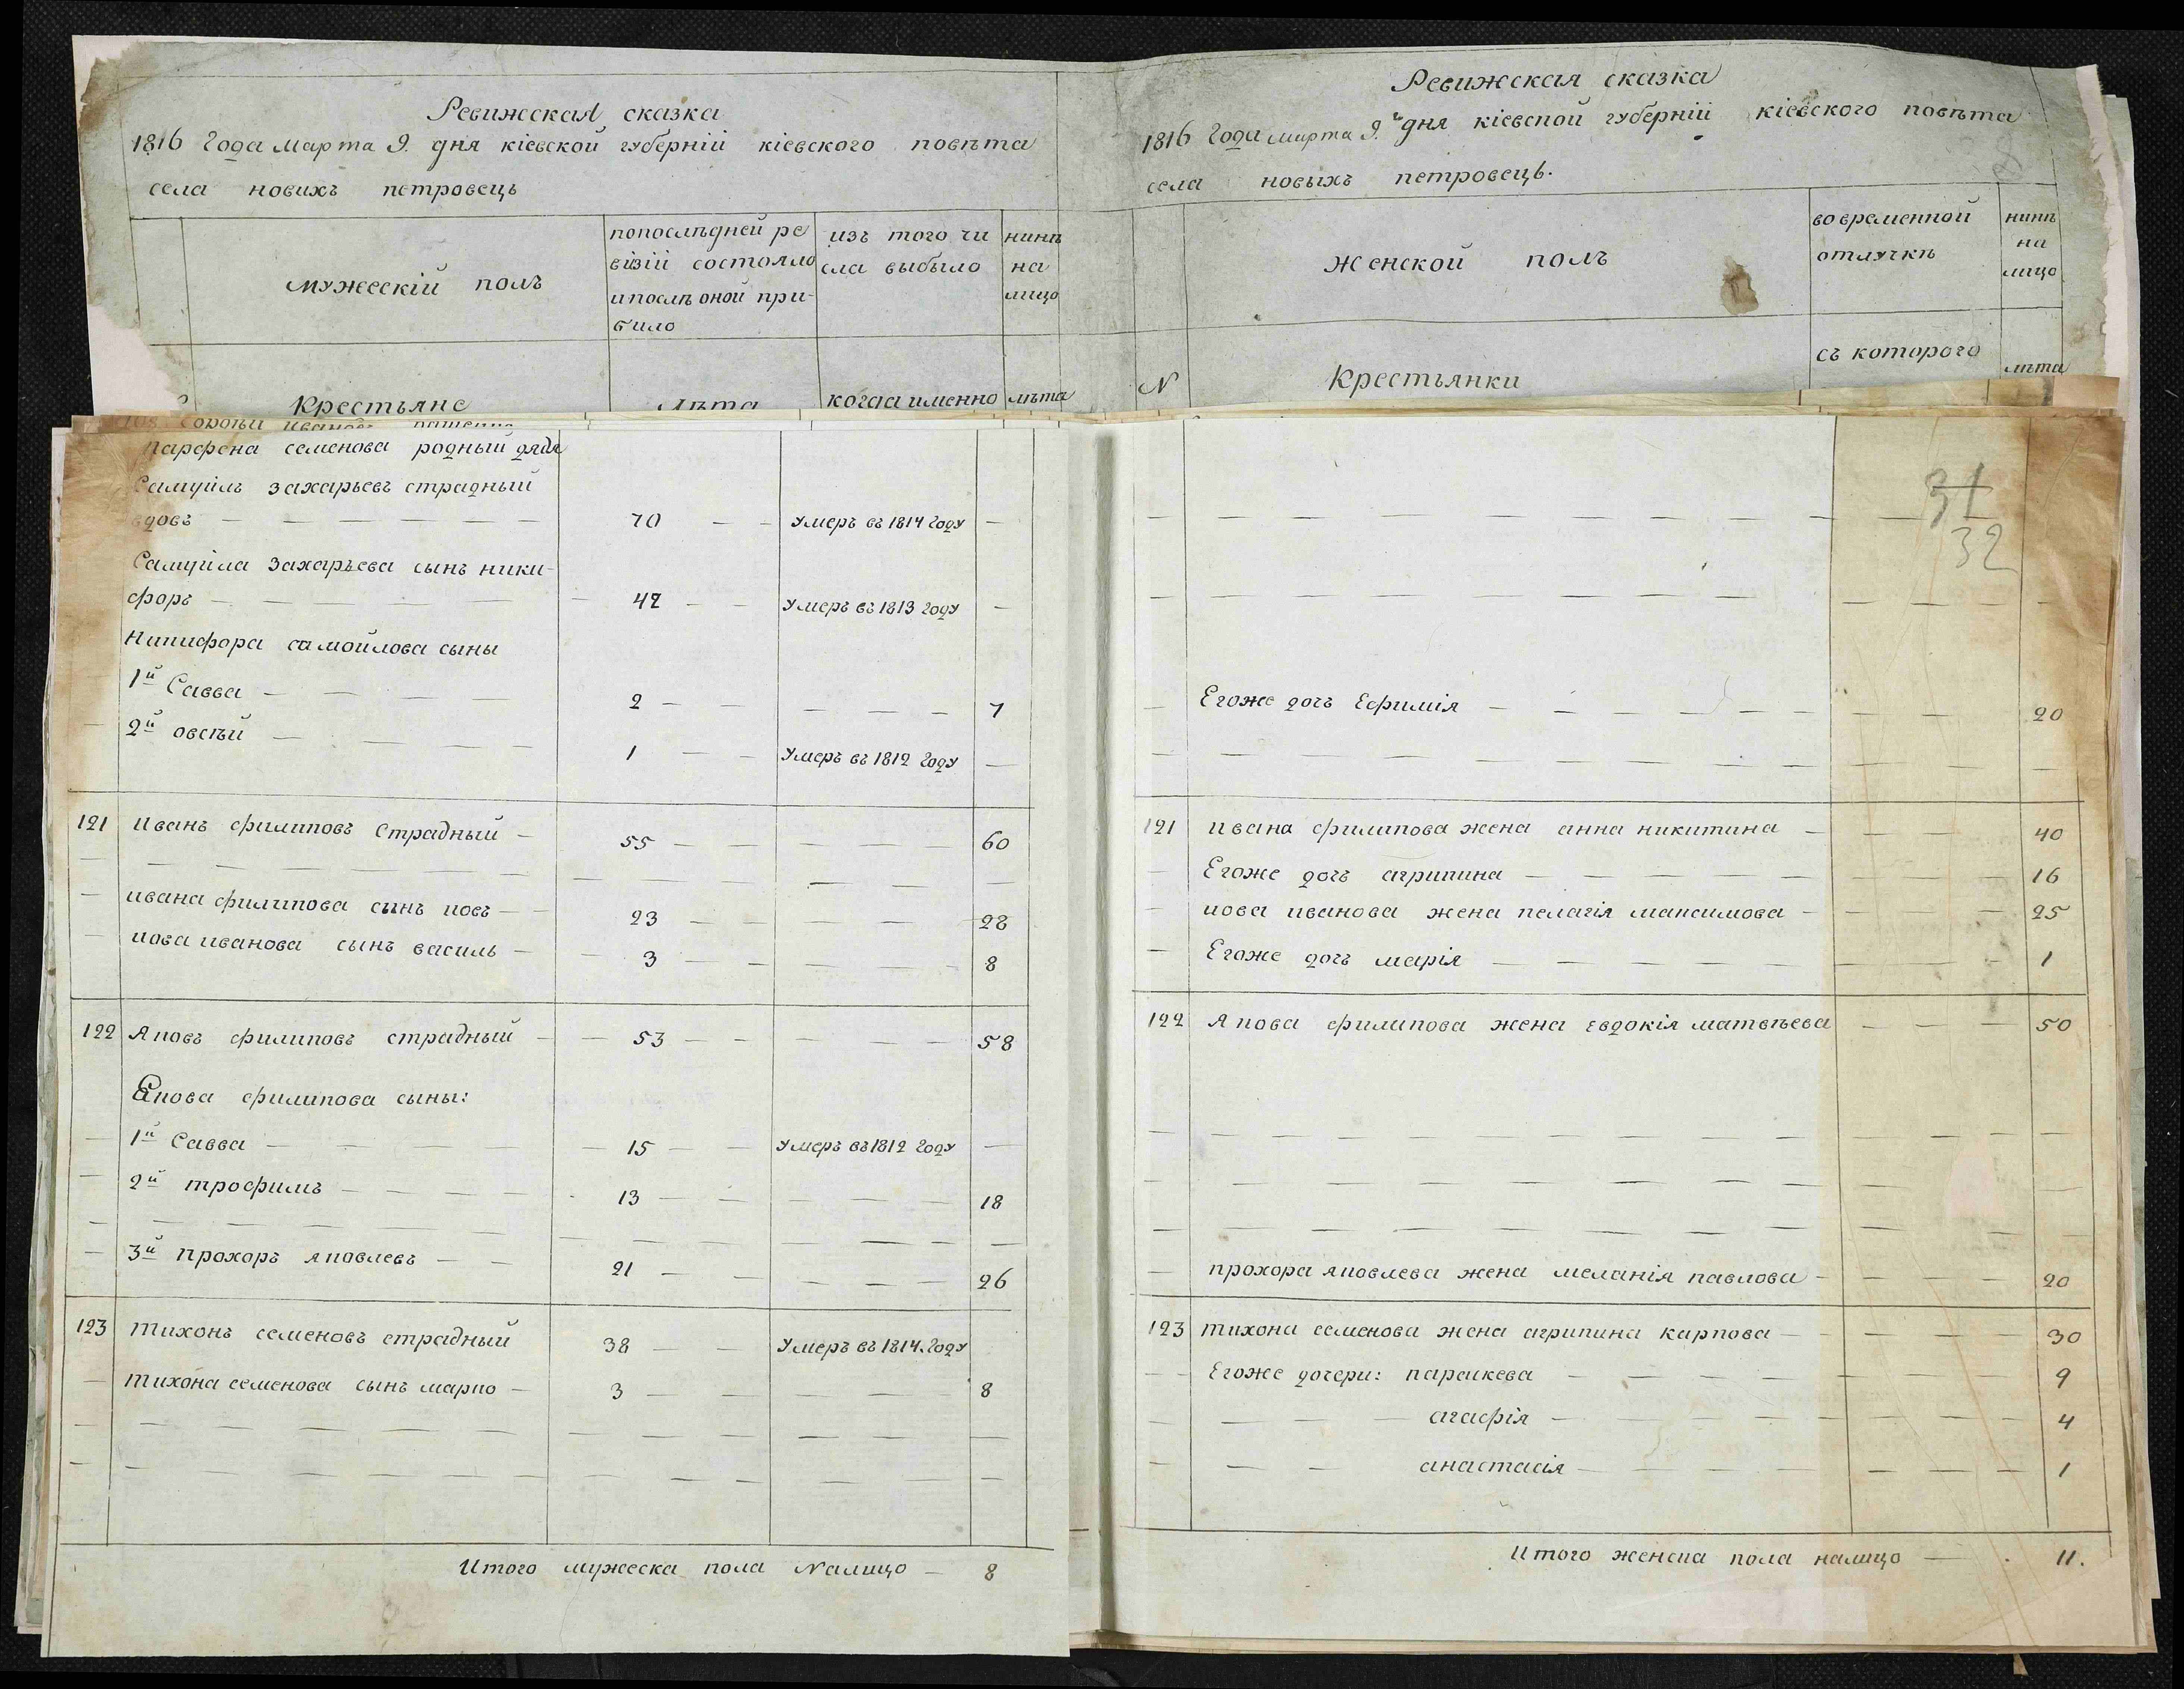 Ревижская сказка
1816 Года Марта 9. дня кіевской губерніи кіевского повѣта
села новихъ петровець
мужескій полъ
попослѣдней ре
візіи состояло
и послѣ оной при-
било
изъ того чи
сла выбыло
нинѣ
на
лицо
Крестьяне
лѣта
когда именно
лѣта
Ревижская сказка
1816 Года марта 9.го дня кіевской губерніи кіевского повѣта
села новыхъ петровець.
2
Женской полъ
во временной
отлучкѣ
нинѣ
на
лицо
N
Крестьянки
съ которого
лѣта
парфена семенова родный дядя
Самуилъ захарьевъ страдный
вдовъ — 70 — умеръ въ 1814 году —
Самуіла Захарьева сынъ ники-
форъ — 42 — умеръ въ 1813 году —
Никифора самойлова сыны
1й Савва — 2 — 7
2й овсѣй — 1 — Умеръ въ 1812 году —
121 Иванъ филиповъ Страдный — 55 — 60
ивана филипова сынъ иовъ — 23 — 28
иова иванова сынъ василь — 3 — 8
122 Яковъ филиповъ страдный — 53 — 58
Якова филипова сыны:
1й Савва — 15 — умеръ въ 1812 году —
2й трофимъ — 13 — 18
3й прохоръ яковлевъ — 21 — 26
123 тихонъ семеновъ страдный 38 — Умеръ въ 1814. году
тихона семенова сынъ марко — 3 — 8
Итого мужеска пола Nалицо — 8
31
32
Егоже дочъ Ефимія — 20
121 ивана филипова жена анна никитина — 40
Егоже дочъ агрипина — 16
иова иванова жена пелагія максимова — 25
Егоже дочъ марія — 1
122 Якова филипова жена евдокія матвѣева — 50
прохора яковлева жена меланія павлова — 20
123 тихона семенова жена агрипина карпова — 30
Егоже дочери: параскева — 9
агафія — 4
анастасія — 1
Итого женска пола налицо — 11.